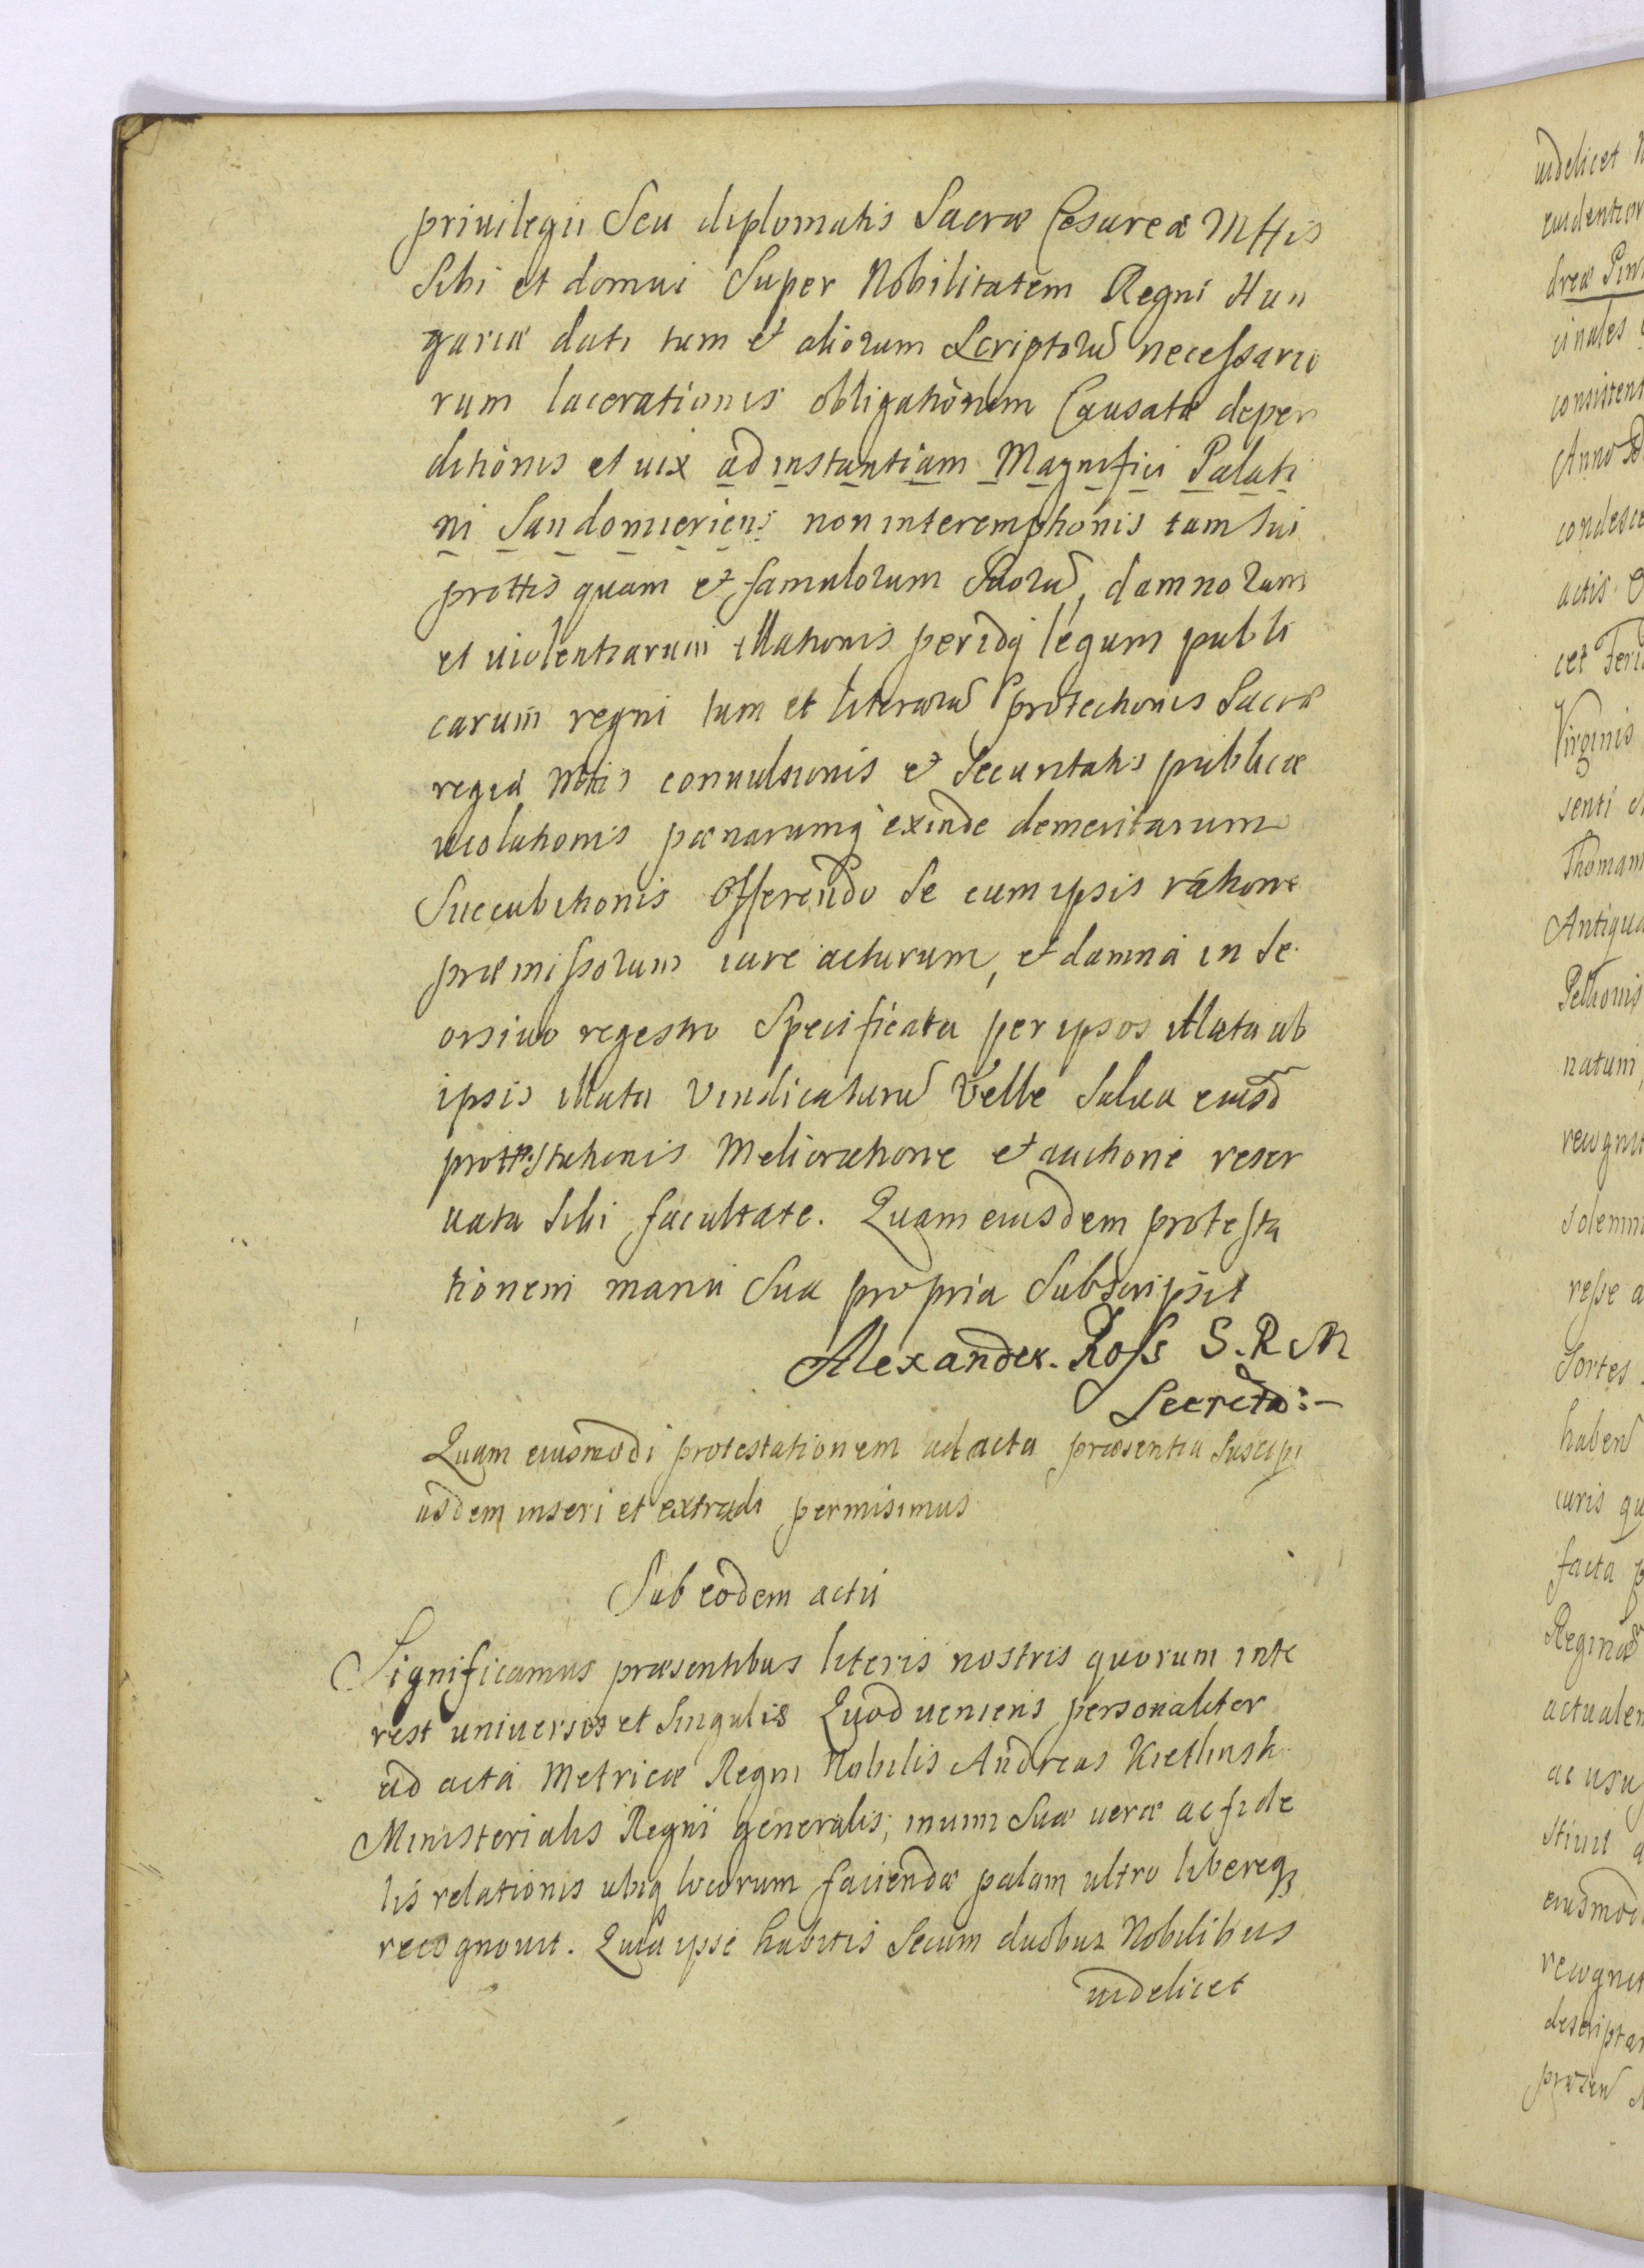 priuilegii Seu diplomatis Sacræ Cesareæ Mttis
Sibi et domui Super Nobilitatem Regni Hun
gariæ dati tum et aliorum Scriptorū necessario
rum lacerationis obligationum Causatæ deper
ditionis et uix ad instantiam Magnifici Palati
ni Sandomiriens non interemptionis tam Sui
prottis quam et famulorum Suorū, damnorum
et uiolentiarum illationis peridq legum publi
carum regni tum et literarū protectionis Sacræ
regiæ Mttis conuulsionis et Securitatis publicæ
uiolationis pœnarumq exinde demeritarum
Succubitionis Offerendo Se cum ipsis ratione
præmissorum iure acturum, et damna in Se
orsiuo regestro Specificata per ipsos illata ab
ipsis illata Vindicaturū Velle Salua eiusd
prottestationis Melioratione et auctione reser
uata Sibi facultate. Quam eiusdem protesta
tionem manu Sua propria Subscripsit
Alexander. Ross S. R M
Secreta:-
Quam eiusmodi protestationem ad acta præsentia Suscipi
usdem inseri et extradi permisimus
Sub eodem actu
Significamus præsentibus literis nostris quorum inte
rest uniuersis et Singulis Quod ueniens personaliter
ad acta Metricæ Regni Nobilis Andreas Kietlinsk
Ministerialis Regni generalis, inuim Suæ ueræ ac fide
lis relationis ubiq locorum faciendæ palam ultro libereq
recognouit. Quia ipse habitis Secum duobus Nobilibus
uidelicet